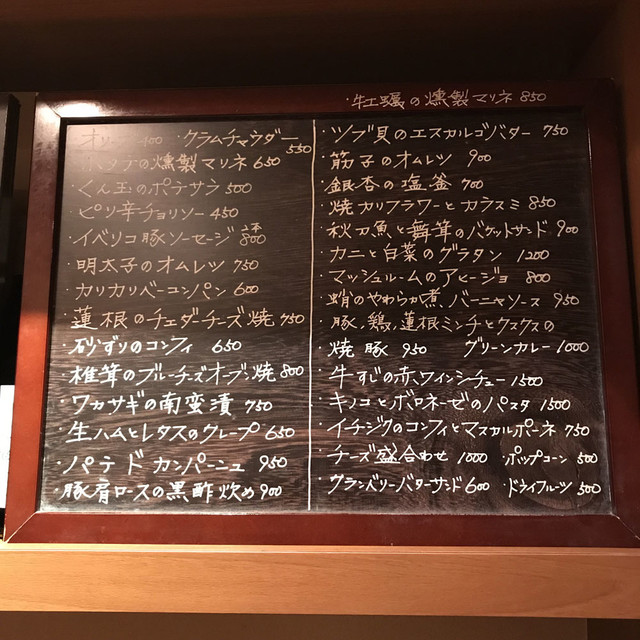 ・牡蠣の燻製マリネ 850
・クラムチャウダー 550
の燻製マリネ 650
・くん玉のポテサラ 500
・ピリ辛チョリソー 450
・イベリコ豚ソーセージ 2本 800
・明太子のオムレツ 750
・カリカリベーコンパン 600
・蓮根のチェダーチーズ焼 750
・砂ずりのコンフィ 650
・椎茸のブルーチーズオーブン焼 800
・ワカサギの南蛮漬 750
・生ハムとレタスのクレープ 650
・パテ ド カンパーニュ 950
・豚肩ロースの黒酢炒め 900
・ツブ貝のエスカルゴバター 750
・筋子のオムレツ 900
・銀杏の塩釜 700
・焼カリフラワーとカラスミ 850
・秋刀魚と舞茸のバケットサンド 900
・カニと白菜のグラタン 1200
・マッシュルームのアヒージョ 800
・蛸のやわらか煮 バーニャソース 950
・豚、鶏、蓮根ミンチとクスクスの
・焼豚 950 グリーンカレー 1000
・牛すじの赤ワインシチュー 1500
・キノコとボロネーゼのパスタ 1500
・イチジクのコンフィとマスカルポーネ 750
・チーズ盛合わせ 1000 ・ポップコーン 500
・クランベリーバターサンド 600 ・ドライフルーツ 500